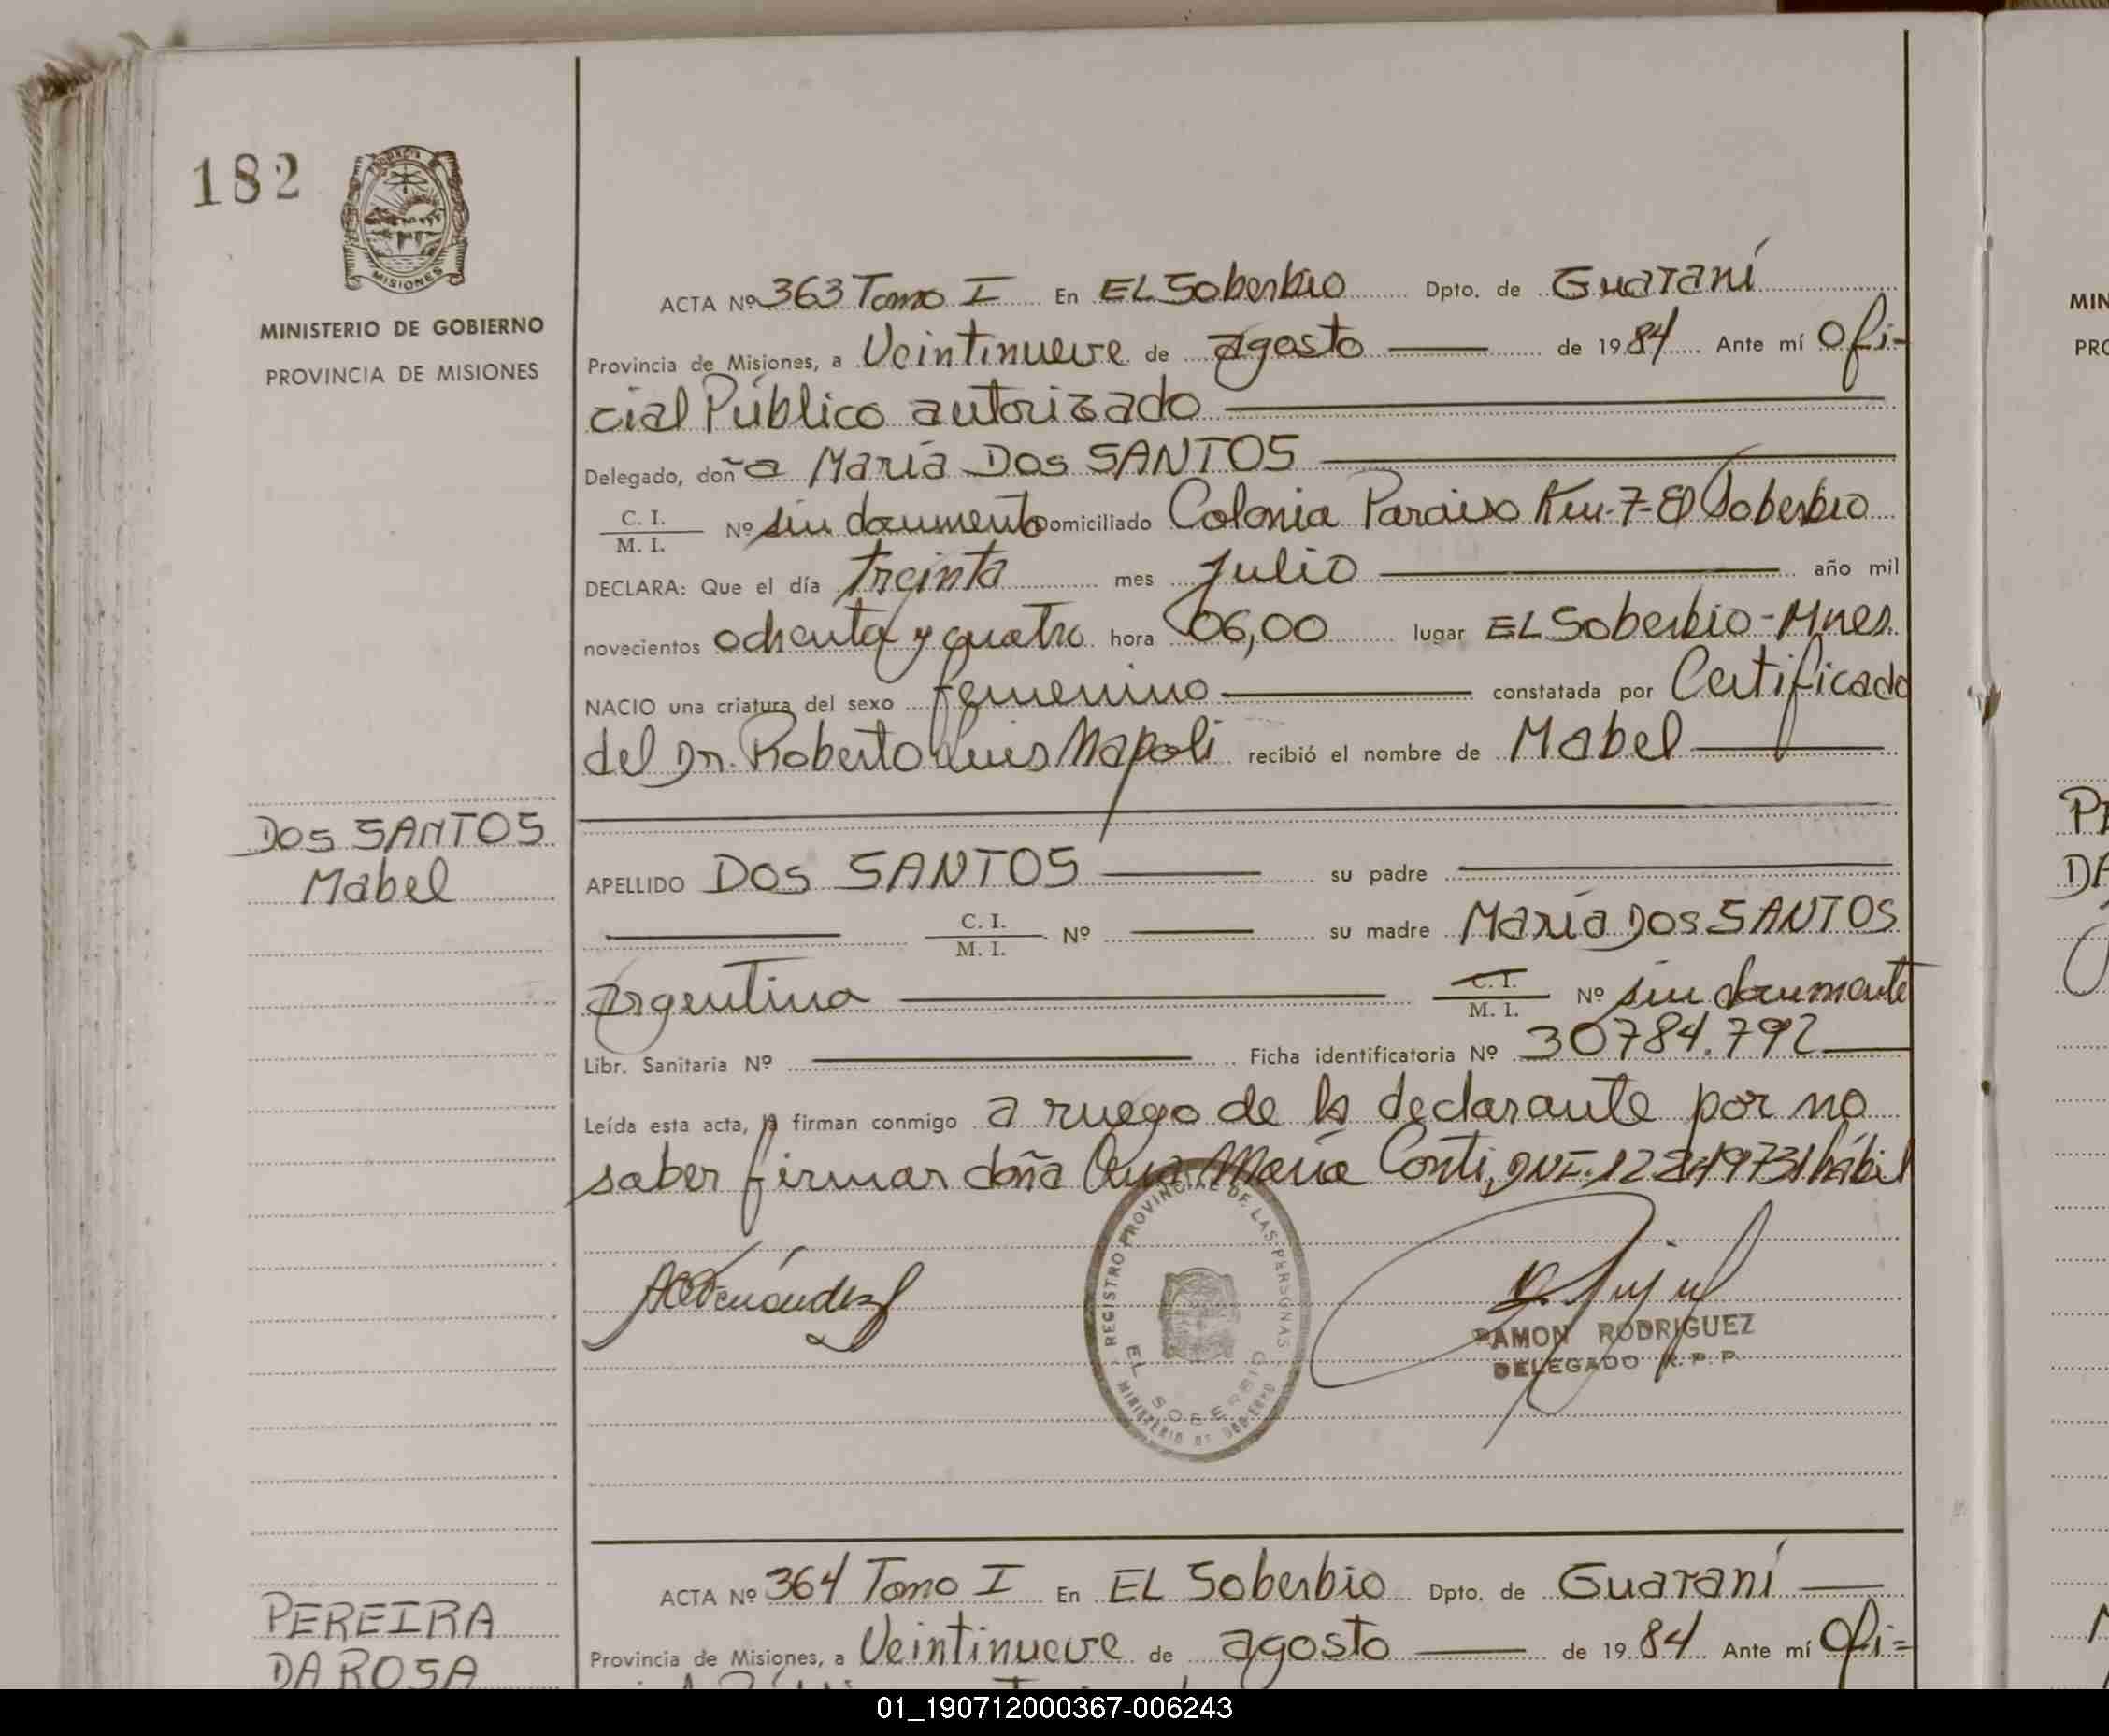 182
PROVINCIA DE
MISIONES
MINISTERIO DE GOBIERNO
PROVINCIA DE MISIONES
ACTA Nº 363 Tomo I En EL Soberbio Dpto. de Guaraní
Provincia de Misiones, a Veintinueve de agosto de 1984 Ante mí Ofi-
cial Público autorizado
Delegado, doña María Dos SANTOS
C. I.
M. I. Nº sin documento Domiciliado Colonia Paraiso Km-7-El Soberbio
DECLARA: Que el día treinta mes Julio año mil
novecientos ochenta y quatro hora 06,00 lugar EL Soberbio-Mnes.
NACIO una criatura del sexo femenino constatada por Certificado
del Dr. Roberto Luis Napoli recibió el nombre de Mabel
DOS SANTOS
Mabel
APELLIDO DOS SANTOS su padre
C. I.
M. I. Nº su madre María DOS SANTOS
argentina C. I.
M. I. Nº sin documento
Libr. Sanitaria Nº Ficha identificatoria Nº 30784.792
Leída esta acta, la firman conmigo a ruego de la declarante por no
saber firmar doña Ana María Conti, hábil
REGISTRO PROVINCIAL DE LAS PERSONAS
EL SOBERBIO
MINISTERIO DE GOBIERNO
RAMON RODRIGUEZ
DELEGADO R. P. P.
ACTA Nº 364 Tomo I En EL Soberbio Dpto. de Guaraní
PEREIRA
Provincia de Misiones, a Veintinueve de agosto de 1984 Ante mí Ofi=
DA ROSA
MIN
PRO
01_190712000367-006243